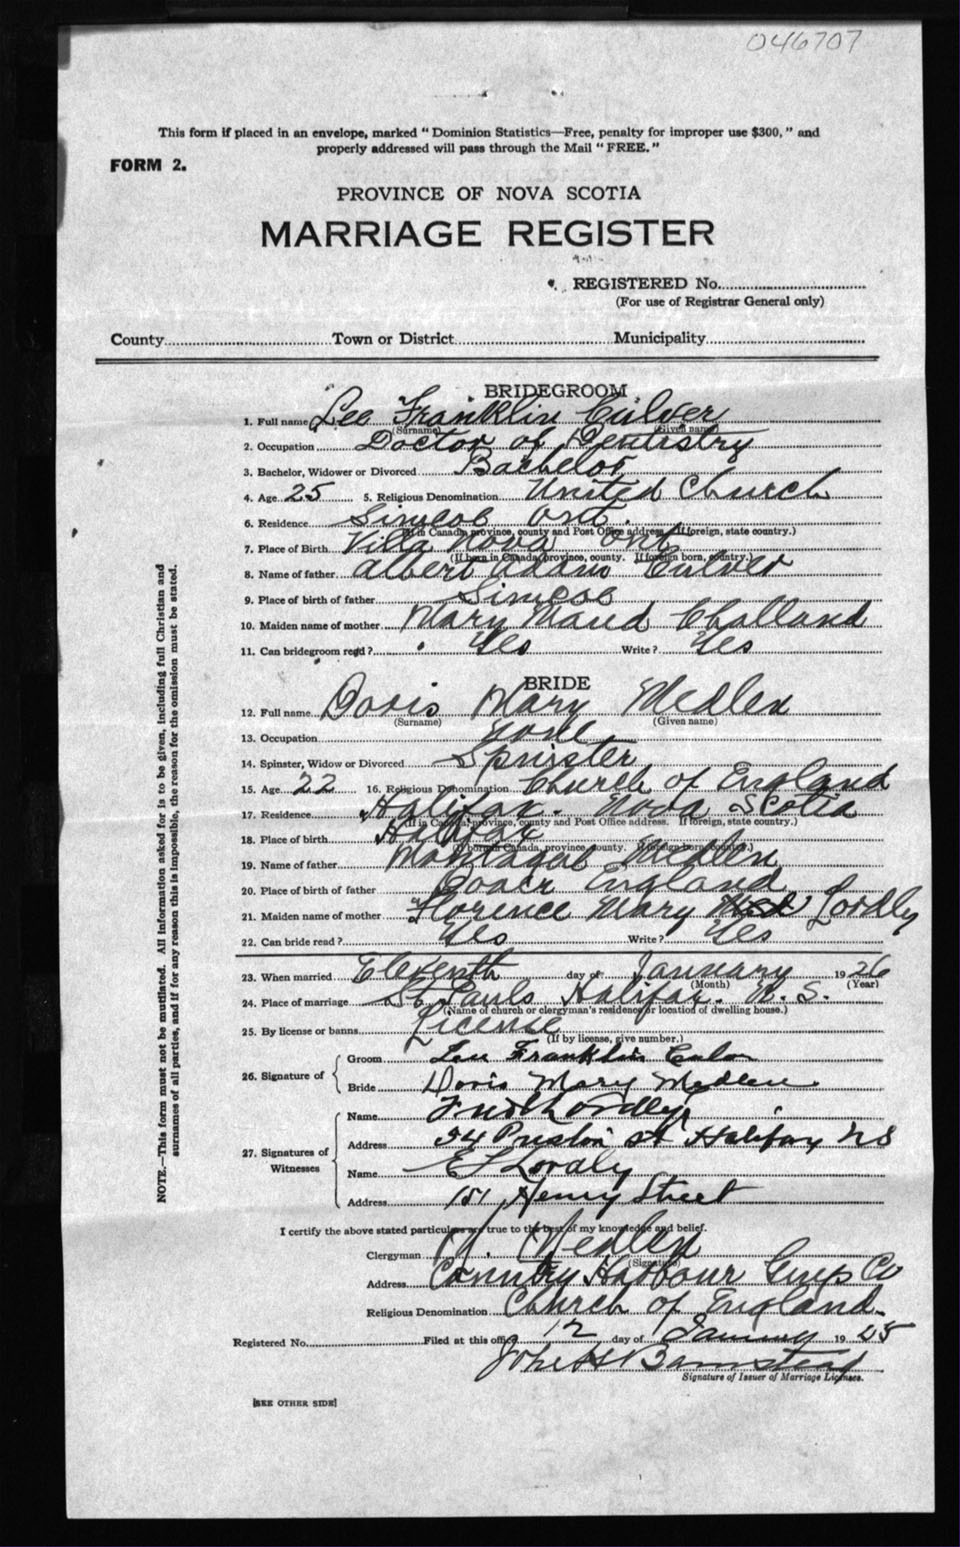 046707
This form if placed in an envelope, marked "Dominion Statistics—Free, penalty for improper use $300," and
properly addressed will pass through the Mail "FREE."
FORM 2.
PROVINCE OF NOVA SCOTIA
MARRIAGE REGISTER
REGISTERED No.
(For use of Registrar General only)
County Town or District Municipality
BRIDEGROOM
1. Full name Lee Franklin Culver
(Surname) (Given name)
2. Occupation Doctor of Dentistry
3. Bachelor, Widower or Divorced Bachelor
4. Age 25 5. Religious Denomination United Church
6. Residence Simcoe Ont.
(If in Canada, province, county and Post Office address. If foreign, state country.)
7. Place of Birth Villa Nova Ont
(If born in Canada, province, county. If foreign born, country.)
8. Name of father Albert Adam Culver
9. Place of birth of father Simcoe
10. Maiden name of mother Mary Maud Challand
11. Can bridegroom read? Yes Write? Yes
BRIDE
12. Full name Doris Mary Medlen
(Surname) (Given name)
13. Occupation None
14. Spinster, Widow or Divorced Spinster
15. Age 22 16. Religious Denomination Church of England
17. Residence Halifax. Nova Scotia
(If in Canada, province, county and Post Office address. If foreign, state country.)
18. Place of birth Halifax
(If born in Canada, province, county. If foreign born, country.)
19. Name of father Montague Medlen
20. Place of birth of father Dover England
21. Maiden name of mother Florence Mary Lordly
22. Can bride read? Yes Write? Yes
23. When married Eleventh day of January 1926
(Month) (Year)
24. Place of marriage St Pauls Halifax. N.S.
(Name of church or clergyman's residence or location of dwelling house.)
25. By license or banns License
(If by license, give number.)
26. Signature of
Groom Lee Franklin Culver
Bride Doris Mary Medlen
27. Signatures of Witnesses
Name Lordly
Address 54 Preston st Halifax NS
Name E Lordly
Address 151 Henry Street
I certify the above stated particulars are true to the best of my knowledge and belief.
Clergyman M. Medlen
(Signature)
Address Country Harbour Guys Co
Religious Denomination Church of England
Registered No. Filed at this office 12 day of January 1925
John H Barnstead
Signature of Issuer of Marriage Licenses.
[SEE OTHER SIDE]
NOTE.—This form must not be mutilated. All information asked for is to be given, including full Christian and
surnames of all parties, and if for any reason this is impossible, the reason for the omission must be stated.